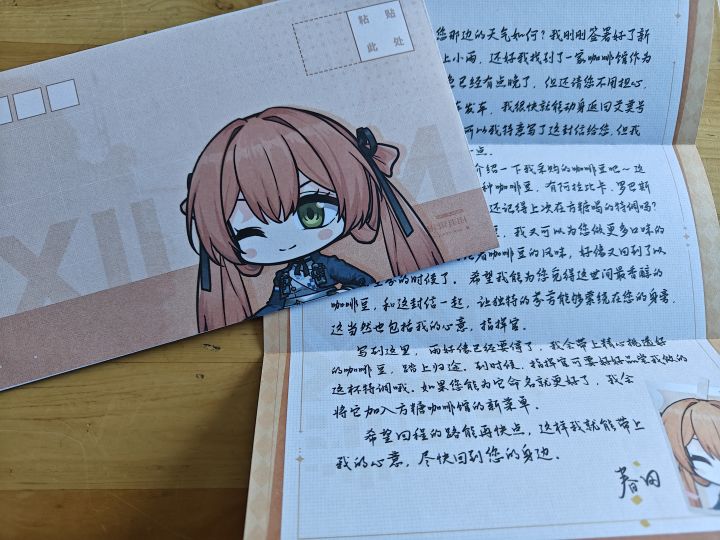 粘 贴
此 处
XII
您那边的天气如何？我刚刚签署好了新
上小雨，还好我找到了一家咖啡馆作为
已经有点晚了，但还请您不用担心，
发车，我很快就能动身返回艾莫号
所以我特意写了这封信给您，但我
点。
介绍一下我采购的咖啡豆吧～这
种咖啡豆，有阿拉比卡、罗巴斯
还记得上次在方糖喝的特调吗？
我又可以为您做更多口味的
着咖啡豆的风味，好像又回到了以
的时候了。希望我能为您觅得这世间最香醇的
咖啡豆，和这封信一起，让独特的芬芳能够萦绕在您的身旁，
这当然也包括我的心意，指挥官。
写到这里，雨好像已经要停了，我会带上精心挑选好
的咖啡豆，踏上归途。到时候，指挥官可要好好品尝我做的
这杯特调哦。如果您能为它命名就更好了，我会
将它加入方糖咖啡馆的新菜单。
希望回程的路能再快点，这样我就能带上
我的心意，尽快回到您的身边。
春田